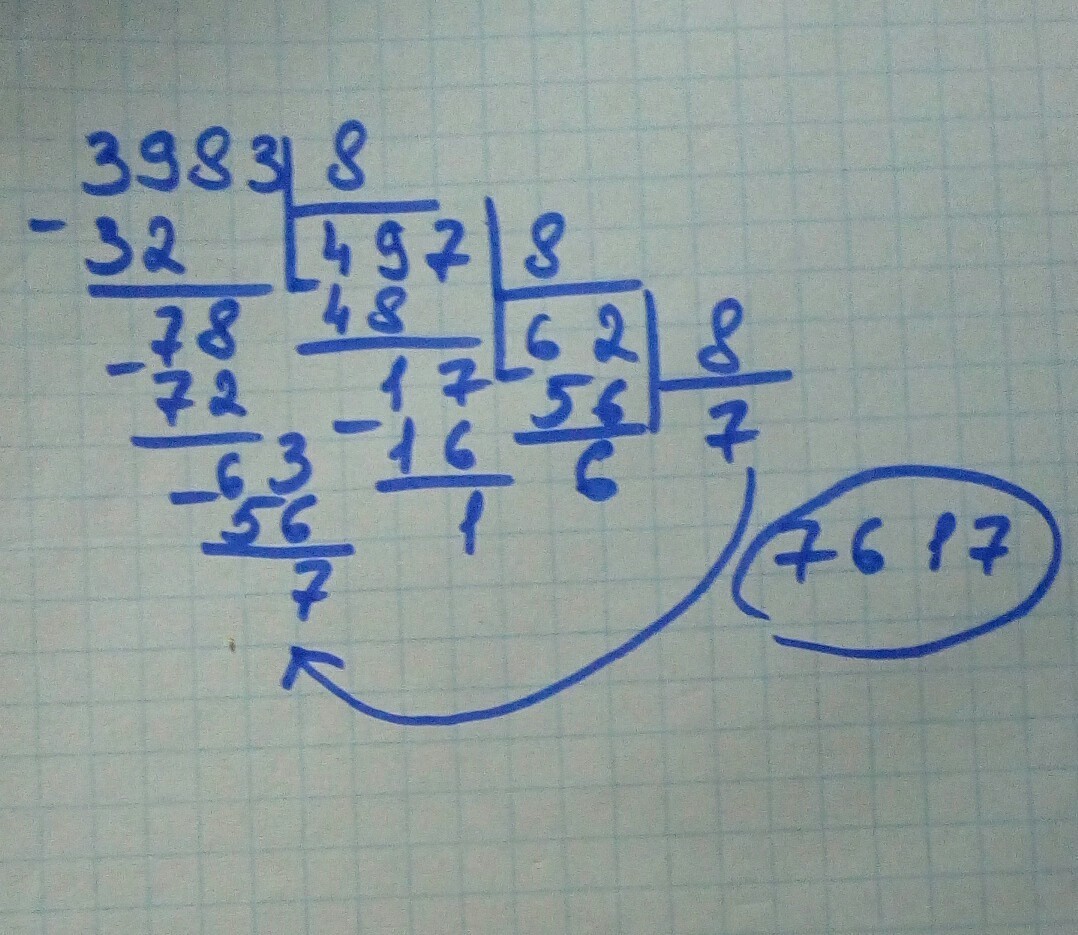 3983 8
- 32 497 8
78 48 62 8
- 72 17 56 7
- 63 - 16 6
56 1 7617
7